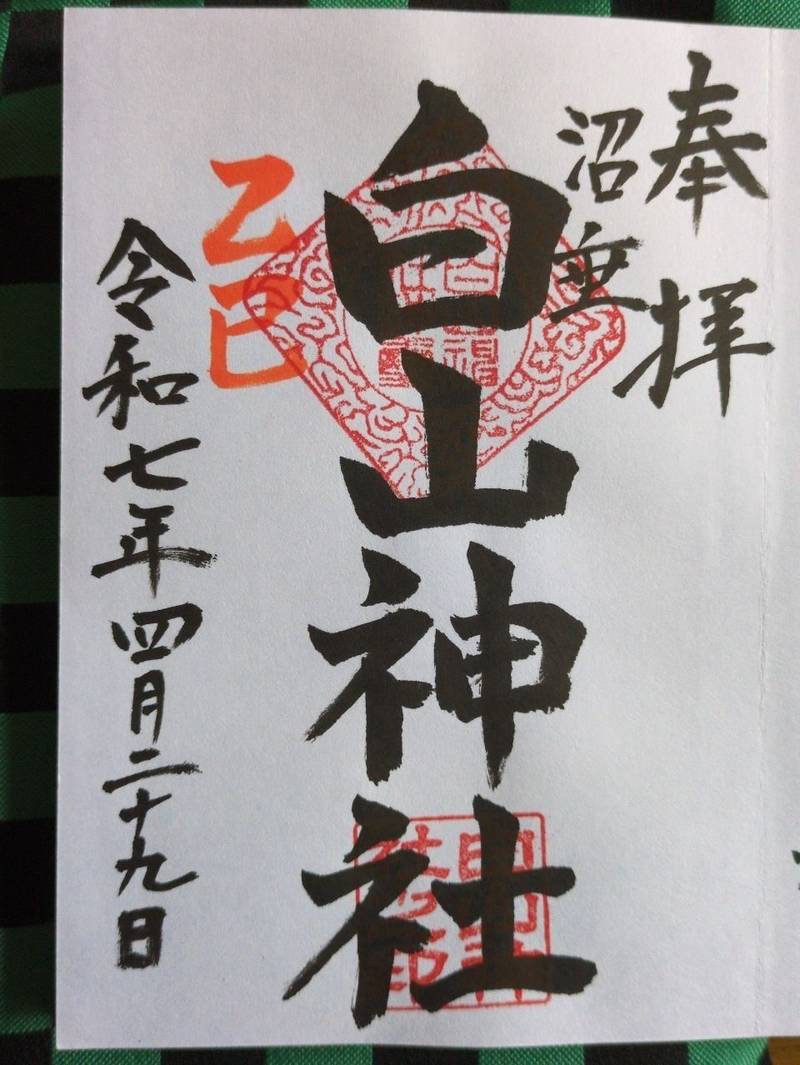 奉拝
沼垂
白山神社
乙巳
令和七年四月二十九日